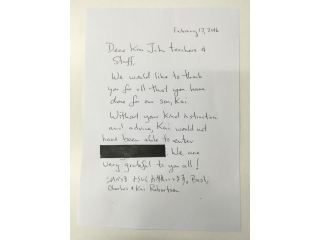 February 17, 2016
Dear Kimi Juku teachers &
Staff,
We would like to thank
you for all that you have
done for our son, Kai.
Without your kind instruction
and advice, Kai would not
have been able to enter
We are
very grateful to you all!
Best,
Charles & Kai Robertson